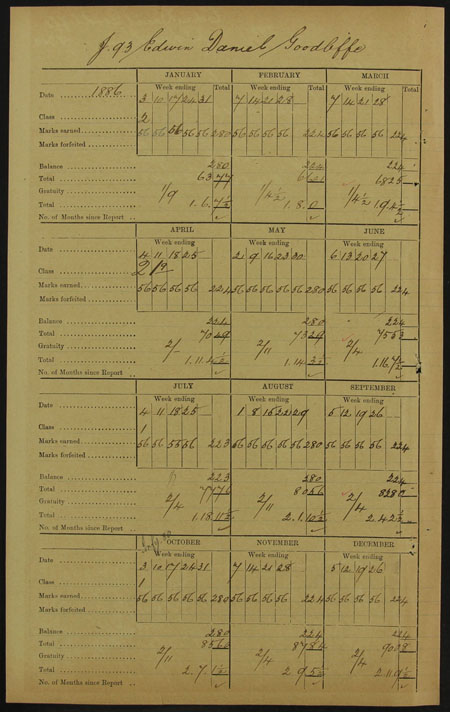 J. 93 Edwin Daniel Goodliffe
JANUARY FEBRUARY MARCH
Week ending Total Week ending Total Week ending Total
Date 1886 3 10 17 24 31 7 14 21 28 7 14 21 28
Class 2
Marks earned 56 56 56 56 56 280 56 56 56 56 224 56 56 56 56 224
Marks forfeited
Balance 280 224 224
Total 6377 6601 6825
Gratuity 1/9 1/4½ 1/4½
Total 1. 6. 7½ 1. 8. 0 1 9 4½
No. of Months since Report
APRIL MAY JUNE
Week ending Week ending Week ending
Date 4 11 18 25 2 9 16 23 30 6 13 20 27
Class
Marks earned 56 56 56 56 224 56 56 56 56 56 280 56 56 56 56 224
Marks forfeited
Balance 224 280 224
Total 7329 7553
Gratuity 2/- 2/11 2/4
Total 1. 11. 4½ 1. 14 3½ 1. 16. 7½
No. of Months since Report
JULY AUGUST SEPTEMBER
Week ending Week ending Week ending
Date 4 11 18 25 1 8 15 22 29 5 12 19 26
Class 1
Marks earned 56 56 55 56 223 56 56 56 56 56 280 56 56 56 56 224
Marks forfeited
Balance 223 280 224
Total 7776 8056 8280
Gratuity 2/4 2/11 2/4
Total 1. 18. 11½ 2. 1. 10½ 2. 4. 2½
No. of Months since Report
OCTOBER NOVEMBER DECEMBER
Week ending Week ending Week ending
Date 3 10 17 24 31 7 14 21 28 5 12 19 26
Class 1
Marks earned 56 56 56 56 56 280 56 56 56 56 224 56 56 56 56 224
Marks forfeited
Balance 280 224 224
Total 8560 8784 9008
Gratuity 2/11 2/4 2/4
Total 2. 7. 1½ 2 9 5½ 2. 11. 9½
No. of Months since Report